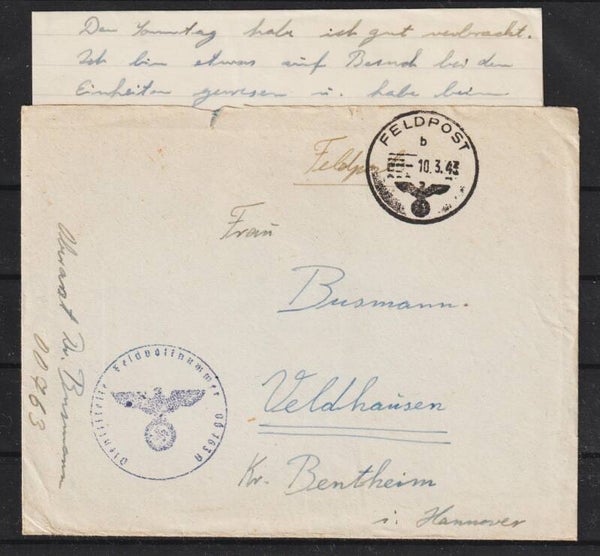 Den Sonntag habe ich gut verbracht.
Ich bin etwas auf Besuch bei den
Einheiten gewesen u. habe beim
FELDPOST
b
10.3.43
Feldpost
Frau
Busmann.
Veldhausen
Kr. Bentheim
i. Hannover
Oberarzt Dr. Busmann
00763
Dienststelle Feldpostnummer 00763 A